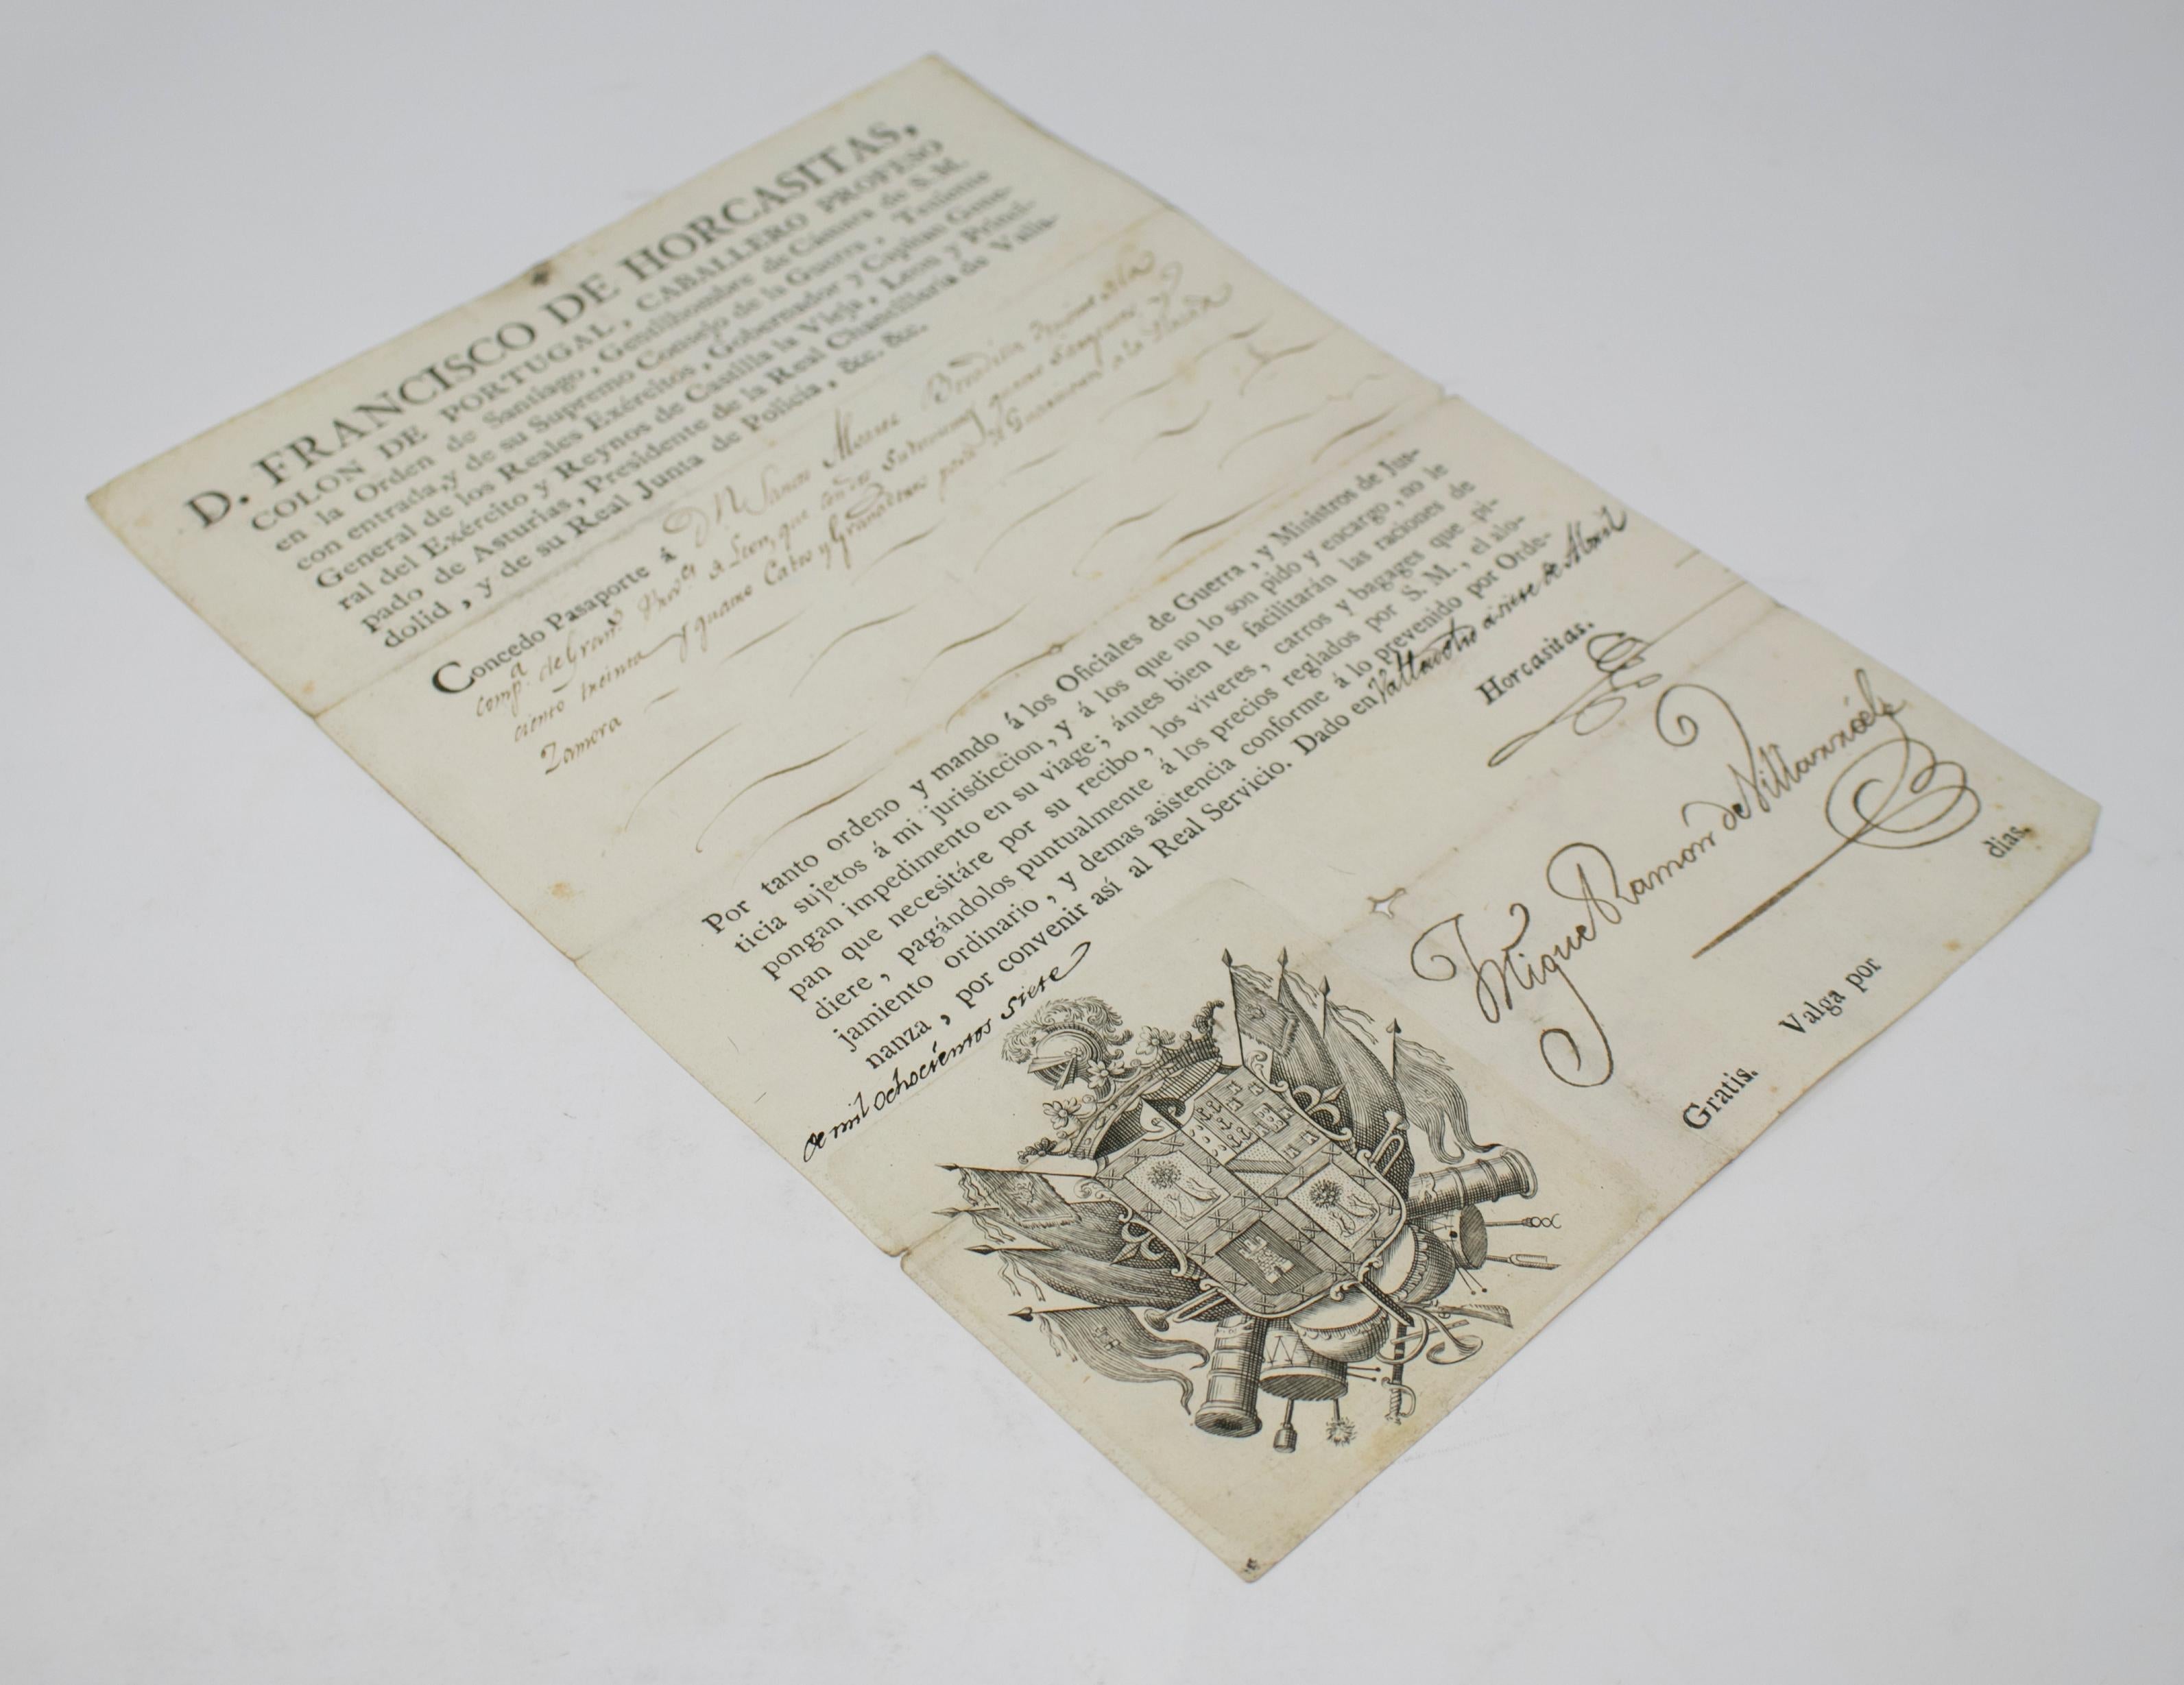 D. FRANCISCO DE HORCASITAS,
COLON DE PORTUGAL, CABALLERO PROFESO
en la Orden de Santiago, Gentilhombre de Cámara de S. M.
con entrada, y de su Supremo Consejo de la Guerra, Teniente
General de los Reales Exércitos, Gobernador y Capitan Gene-
ral del Exército y Reynos de Castilla la Vieja, Leon y Princi-
pado de Asturias, Presidente de la Real Chancillería de Valla-
dolid, y de su Real Junta de Policía, &c. &c.
Concedo Pasaporte á Dn
comp.a de Gran.s Prov.l de Leon, que
ciento treinta y quatro Cabos y Granaderos para
Zamora
Por tanto ordeno y mando á los Oficiales de Guerra, y Ministros de Jus-
ticia sujetos á mi jurisdiccion, y á los que no lo son pido y encargo, no le
pongan impedimento en su viage; ántes bien le facilitarán las raciones de
pan que necesitáre por su recibo, los víveres, carros y bagages que pi-
diere, pagándolos puntualmente á los precios reglados por S. M., el alo-
jamiento ordinario, y demas asistencia conforme á lo prevenido por Orde-
nanza, por convenir así al Real Servicio. Dado en Valladolid a siete de Abril
de mil ochocientos siete
Horcasitas.
Miguel Ramon de
Gratis. Valga por dias.